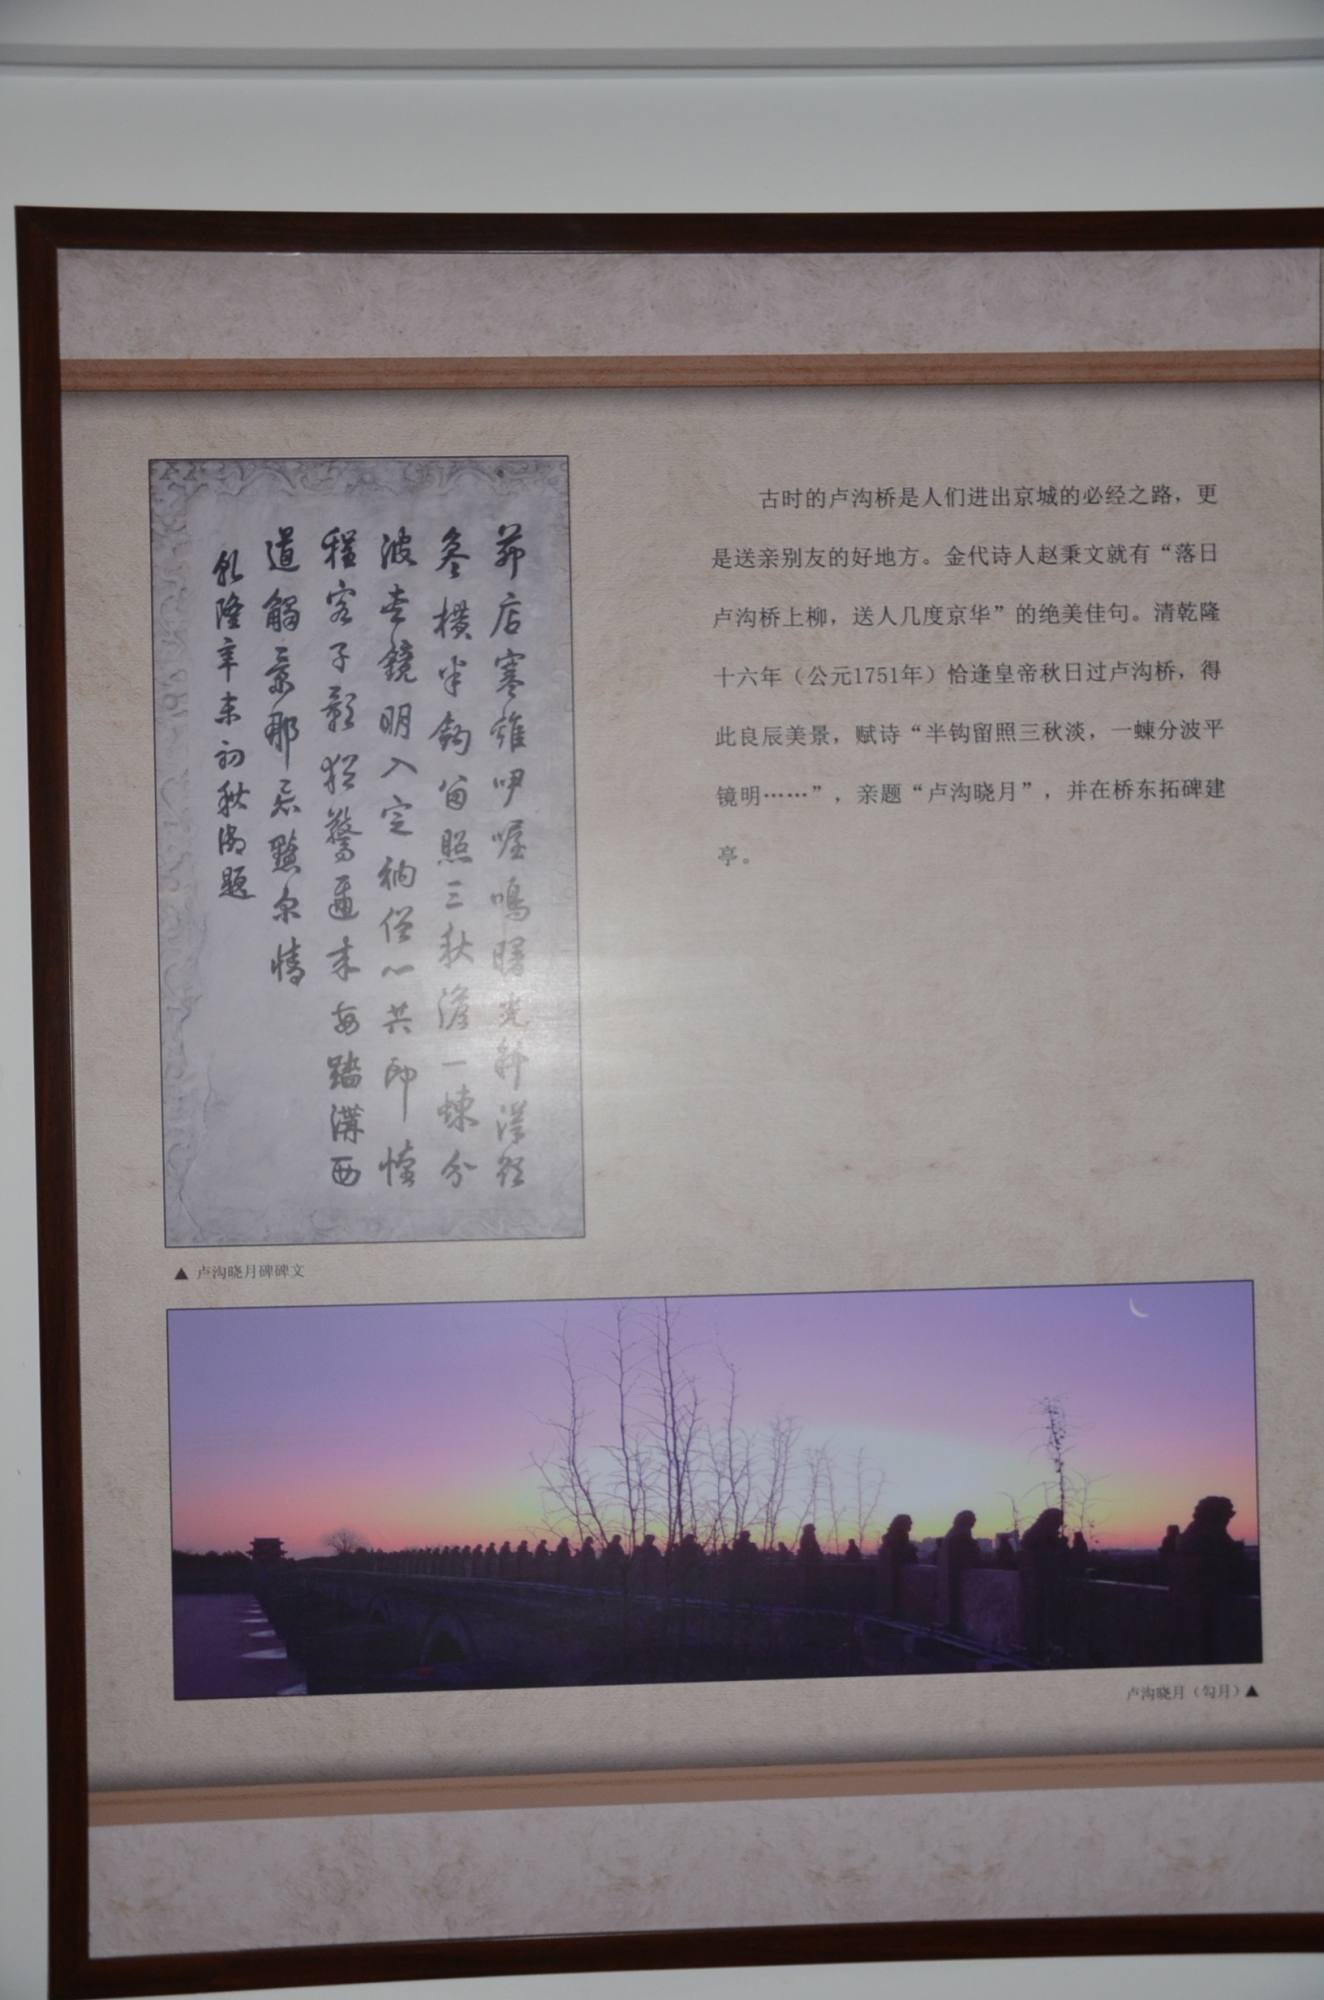 茅店寒雞咿喔鳴曙光斜漢欲
參橫半鈎留照三秋澹一蝀分
波夾鏡明入定衲僧心共印懷
程客子影猶驚邇来每踏溝西
道觸景那忘黯尔情
乾隆辛未初秋御題
▲ 卢沟晓月碑碑文
古时的卢沟桥是人们进出京城的必经之路，更
是送亲别友的好地方。金代诗人赵秉文就有“落日
卢沟桥上柳，送人几度京华”的绝美佳句。清乾隆
十六年（公元1751年）恰逢皇帝秋日过卢沟桥，得
此良辰美景，赋诗“半钩留照三秋淡，一蝀分波平
镜明……”，亲题“卢沟晓月”，并在桥东拓碑建
亭。
卢沟晓月（勾月）▲